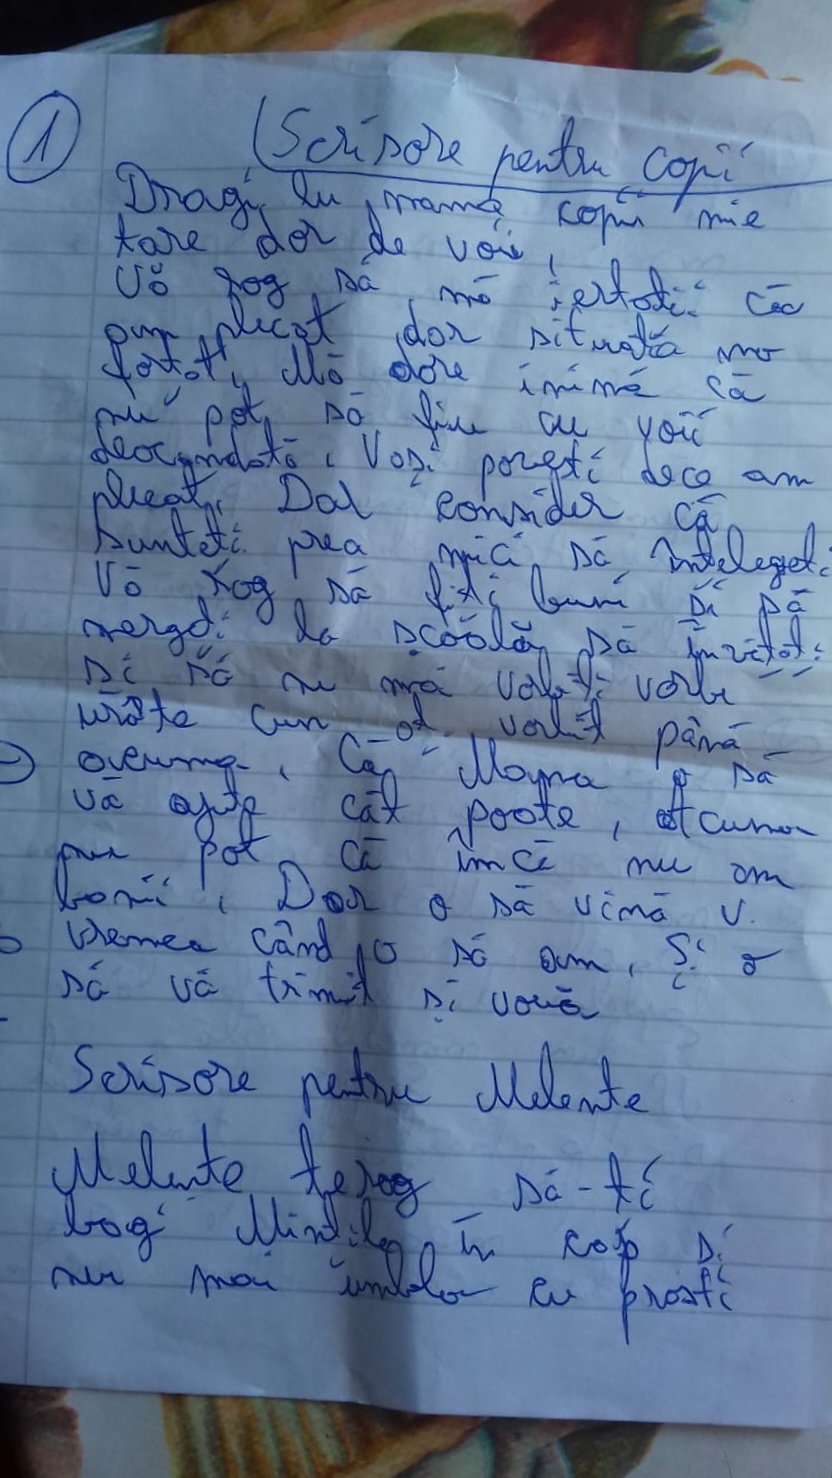 1
Scrisore pentru copii
Dragi lu mama copii mie
tare dor de voii,
Vă rog să mă iertati că
am plecat dor situatia ma
fortat, Mă dore inima că
nu pot să fiu cu voii
deocamdată, Voși porești dece am
plecat, Dar consider că
sunteti prea mici să înteleget:
Vă rog să fiti buni și să
mergeti la școolă să învetat:
si să nu mă vorbiti vorbe
urâte cum ati vorbit până
acuma, Că Mama o să
vă ajute cât poate, atcuma
nu pot că încă nu am
bani, Dar o să vină v.
vremea când o să am, Și o
să vă trimit și vouă
Scrisore pentru Melente
Melente te rog să-ti
bagi Mintile în cap si
nu mai umbla cu prosti